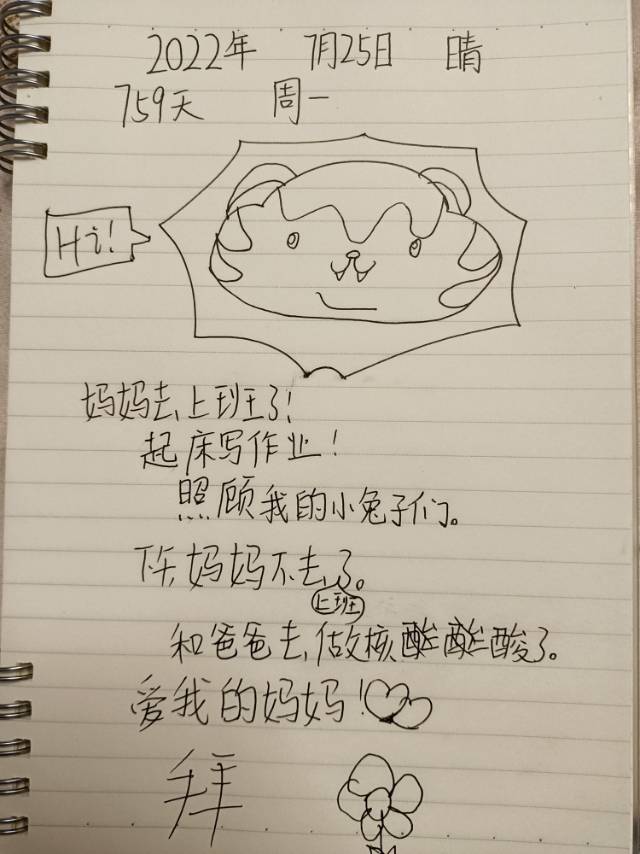 2022年 7月25日 晴
759天 周一
Hi!
妈妈去上班了!
起床写作业!
照顾我的小兔子们。
下午妈妈不去上班了。
和爸爸去做核酸了。
爱我的妈妈!
拜